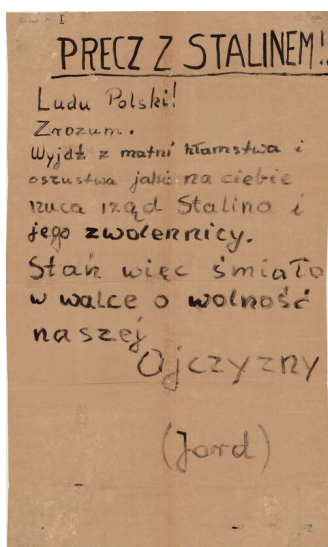 I
PRECZ Z STALINEM!
Ludu Polski!
Zrozum.
Wyjdź z matni kłamstwa i
oszustwa jakie na ciebie
rzuca rząd Stalina i
jego zwolennicy.
Stań więc śmiało
w walce o wolność
naszej
Ojczyzny
(Jord)